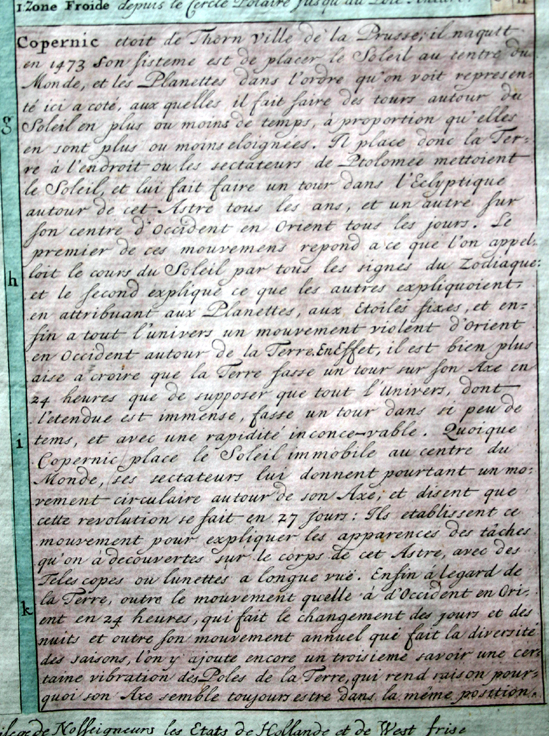 1 Zone Froide depuis le Cercle Polaire jusqu'au Pole
Copernic etoit de Thorn Ville de la Prusse, il naquit
en 1473 Son sisteme est de placer le Soleil au centre du
Monde, et les Planettes dans l'ordre qu'on voit represen-
té ici a coté, aux quelles il fait faire des tours autour du
g
Soleil en plus ou moins de temps, à proportion qu'elles
en sont plus ou moins eloignées. Il place donc la Ter-
re à l'endroit ou les sectateurs de Ptolomée mettoient
le Soleil, et lui fait faire un tour dans l'Eclyptique
autour de cet Astre tous les ans, et un autre sur
son centre d'Occident en Orient tous les jours. Le
premier de ces mouvemens repond a ce que l'on appel-
loit le cours du Soleil par tous les signes du Zodiaque:
h
et le second explique ce que les autres expliquoient
en attribuant aux Planettes, aux Etoiles fixes, et en-
fin a tout l'univers un mouvement violent d'Orient
en Occident autour de la Terre. En Effet, il est bien plus
aise à croire que la Terre fasse un tour sur son Axe en
24 heures que de supposer que tout l'Univers, dont
l'etendue est immense, fasse un tour dans si peu de
tems, et avec une rapidité inconce-vable. Quoique
i
Copernic place le Soleil immobile au centre du
Monde, ses sectateurs lui donnent pourtant un mo-
vement circulaire autour de son Axe, et disent que
cette revolution se fait en 27 Jours: Ils etablissent ce
mouvement pour expliquer les apparences des tâches
qu'on à decouvertes sur le corps de cet Astre, avec des
Telescopes ou lunettes a longue vuë. Enfin à legard de
k
la Terre, outre le mouvement quelle à d'Occident en Ori-
ent en 24 heures, qui fait le changement des jours et des
nuits et outre son mouvement annuel que fait la diversité
des saisons, l'on y ajoute encore un troisieme savoir une cer-
taine vibration des Poles de la Terre, qui rend raison pour-
quoi son Axe semble toujours estre dans la méme position.
ilege de Nosseigneurs les Etats de Hollande et de West frise